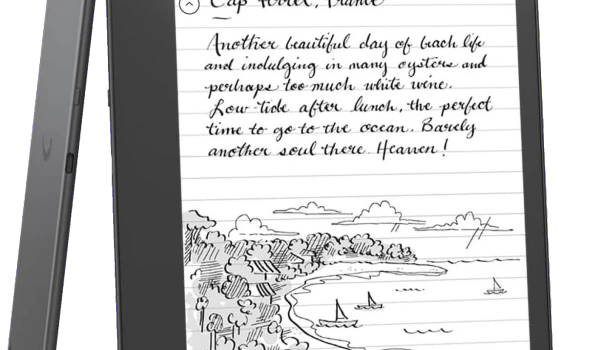 Cap Ferret, France
Another beautiful day of beach life
and indulging in many oysters and
perhaps too much white wine.
Low tide after lunch, the perfect
time to go to the ocean. Barely
another soul there. Heaven!